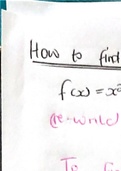 How to find
f(x) = x²
(re-write
To f